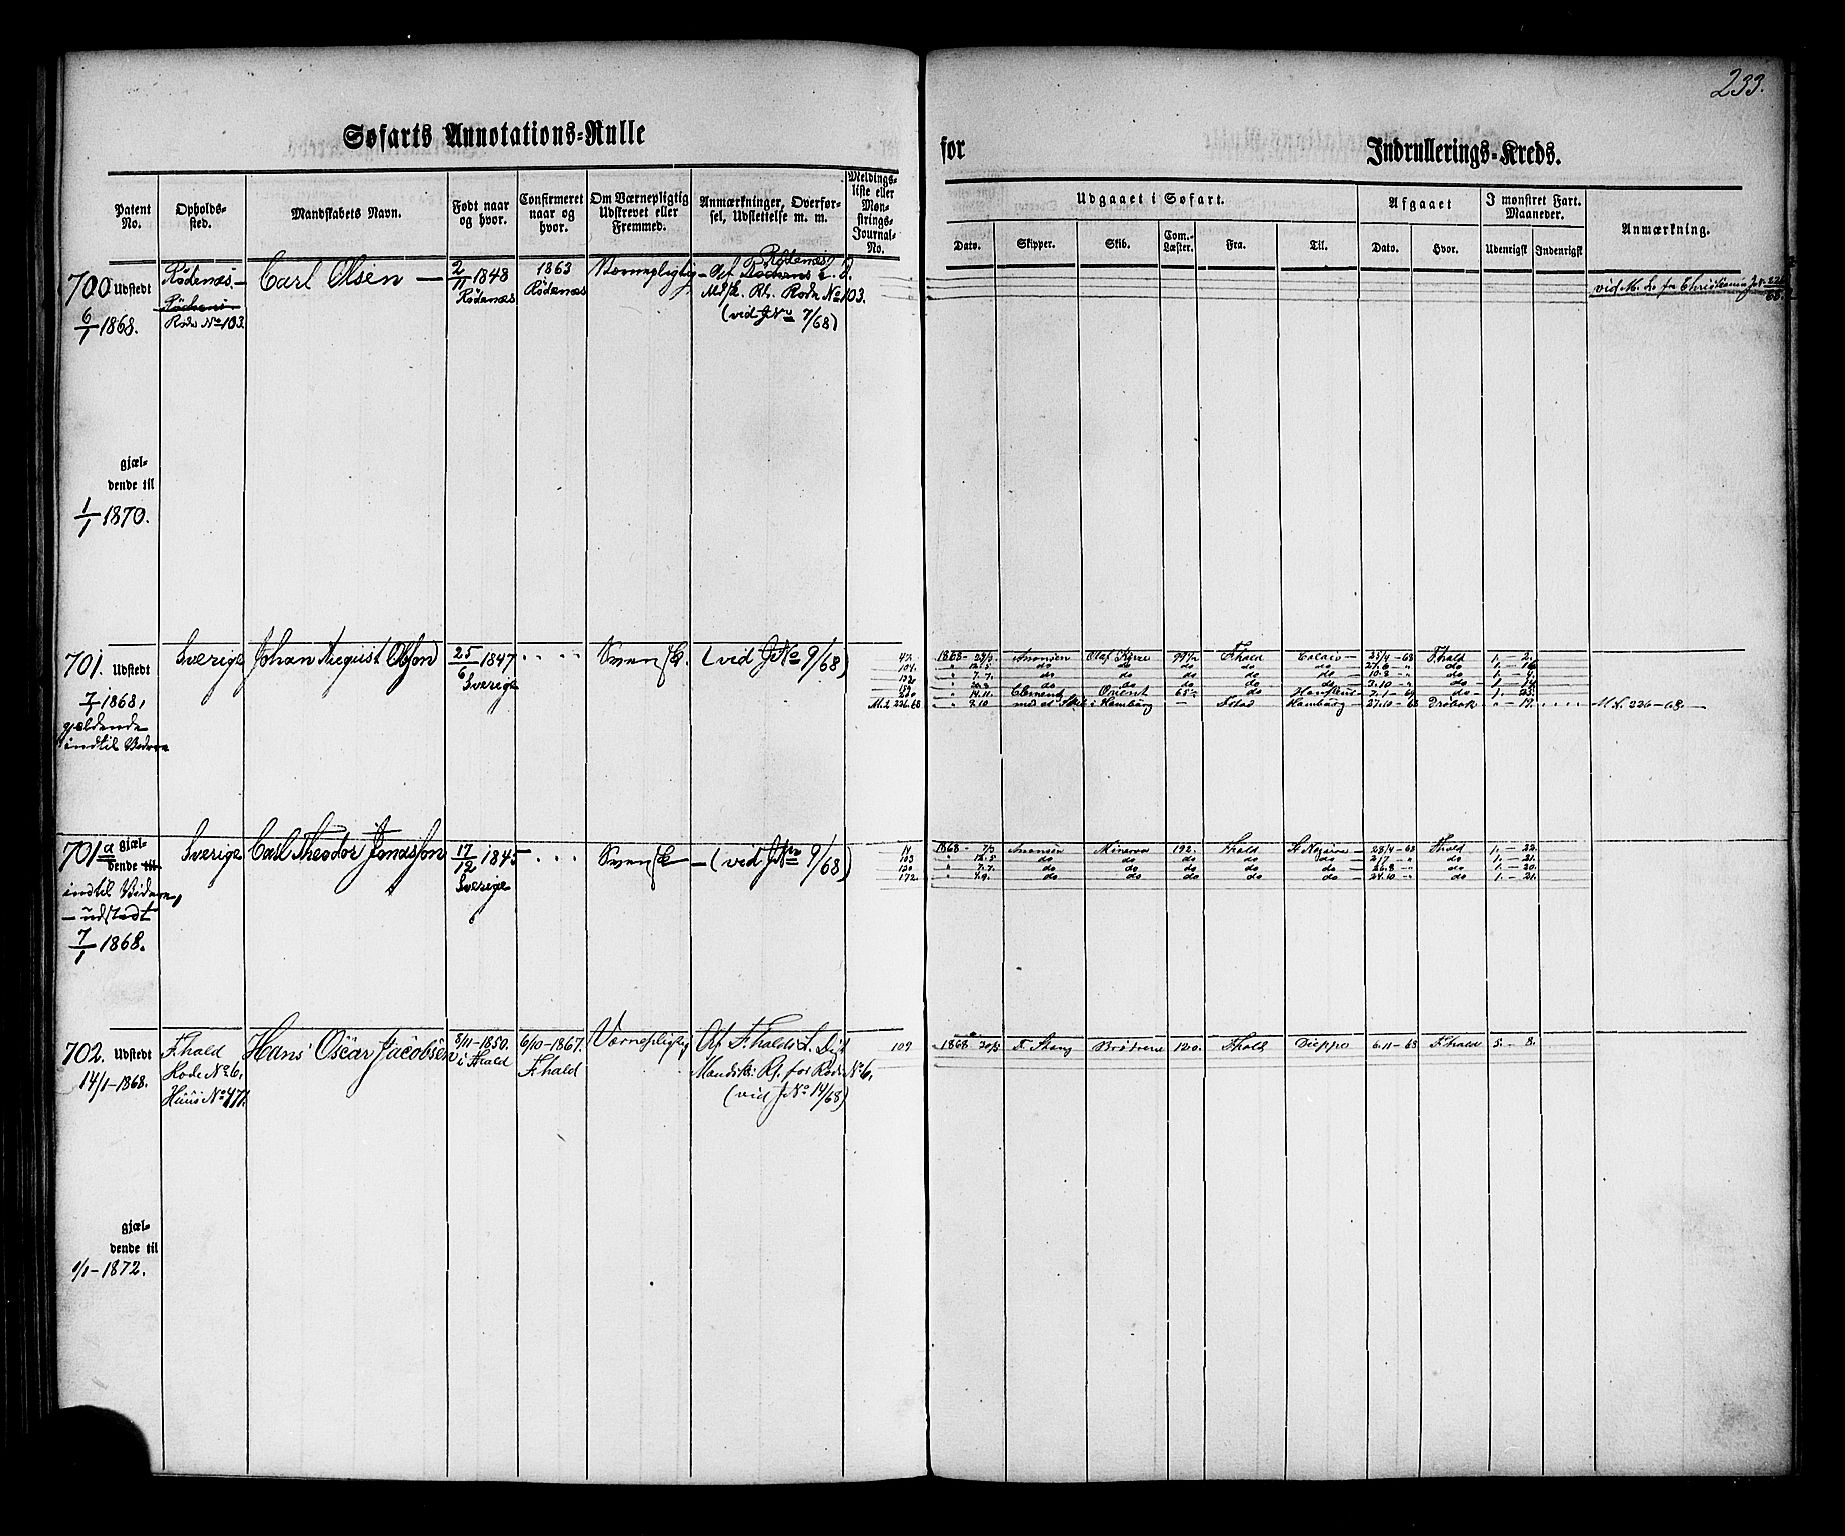 233.
Søfarts Annotations-Rulle
for
Indrullerings-Kreds.
Patent No.
Opholds-sted.
Mandskabets Navn.
Født naar og hvor.
Confirmeret naar og hvor.
Om Værnepligtig Udskrevet eller Fremmed.
Anmærkninger, Overførsel, Udslettelse m. m.
Meldingsliste eller Mønstrings-Journal-No.
Udgaaet i Søfart.
Afgaaet
I mønstret Fart. Maaneder.
Anmærkning.
Dato.
Skipper.
Skib.
Com.-Læster.
Fra.
Til.
Dato.
Hvor.
Udenrigsk
Indenrigsk
700 Udstedt
6/1 1868.
Rødenæs.
Rode No 103.
Carl Olsen —
2/11 1848
Rødenæs
1863
Rødenæs
Værnepligtig
Af Rødenæs L. D.
Md/k. Rl. Rode No 103.
(vid J No 7/68)
gjæl-
dende til
1/1 1870.
701. Udstedt
7/1 1868,
gældende
indtil Videre
Sverige
Johan Olsson
25/6 1847
Sverige
Svensk.
(vid J No 9/68)
42. 1868- Aronsen Olaf Kyrre F.hald 23/4-68 F.hald 1. - 2.
104. " 12.5. do do do do do 27.6 - " do 1. - 16.
132 " 7.7. do do do do do 10.8 - " do 1. - 4.
do do do do do 7.10 - " do 1 - 14.
" 14.11. Orient 65- do 7.1-69 do 1. 23.
M.L 226.68 " 3.10 med et Skib i Hamburg — Hamburg 27.10-68 Drøbak " - 17. M.L. 226-68.
701 a gjæl-
dende til
indtil Videre,
— udstedt
7/1 1868.
Sverige
Carl Theodor Jonasson
17/12 1845
Sverige
Svensk
(vid J No 9/68)
14 1868- 7/3 Aronsen Minerva 192. F.hald 23/4-68 F.hald 1. - 22.
103 " 12.5 do do do do do 2/7 - " do 1. - 21.
120 " 7.7. do do do do do 26.8 - " do 1. - 20.
172. " 4.9. do do do do do 24.10 - " do 1. - 21.
702. Udstedt
14/1-1868.
F.hald
Rode No 6,
Huus No 471.
Hans Oscar Jacobsen
8/11-1850.
i F.hald
6/10-1867.
F.hald
Værnepligtig
Af F.hald L. Dist
Mandsk: Rl. for Rode No 6,
(vid J No 14/68)
109 1868 20/8 Stang Brødrene 120. F.hald Dieppe 6.11-68 F.hald 8.
gjæl-
dende til
1/1-1872.